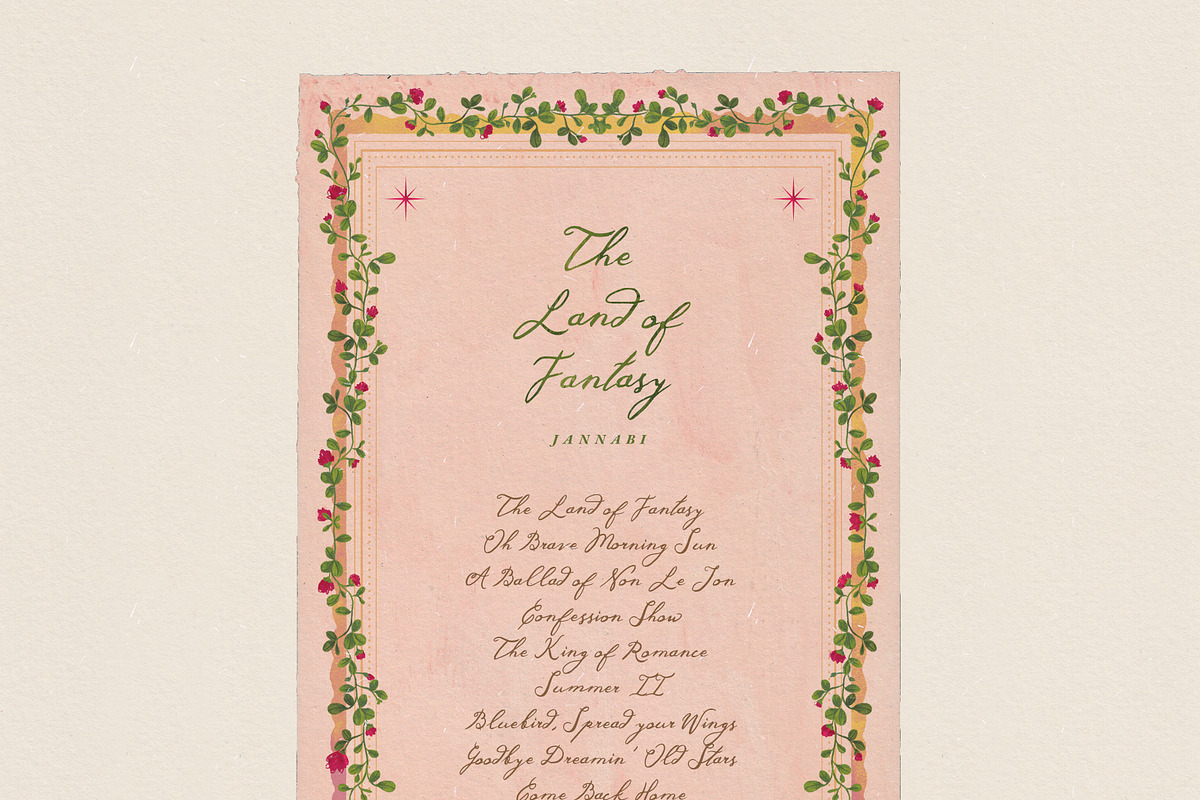 The
Land of
Fantasy
JANNABI
The Land of Fantasy
Oh Brave Morning Sun
A Ballad of Non Le Jon
Confession Show
The King of Romance
Summer II
Bluebird, Spread your Wings
Goodbye Dreamin' Old Stars
Come Back Home